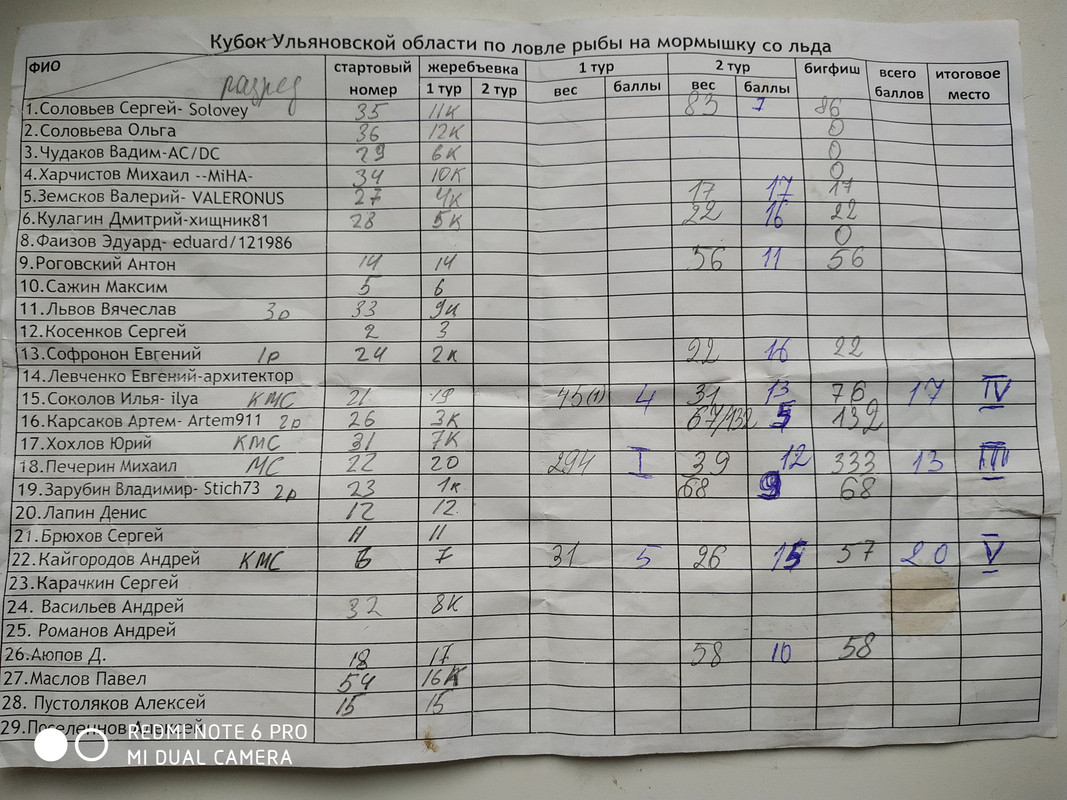 Кубок Ульяновской области по ловле рыбы на мормышку со льда
ФИО разряд стартовый номер жеребьевка 1 тур 2 тур бигфиш всего баллов итоговое место
1 тур 2 тур вес баллы вес баллы
1.Соловьев Сергей- Solovey 35 11К 83 7 86
2.Соловьева Ольга 36 12К 0
3.Чудаков Вадим-AC/DC 29 6К 0
4.Харчистов Михаил --MiHA- 34 10К 0
5.Земсков Валерий- VALERONUS 27 4К 17 17 17
6.Кулагин Дмитрий-хищник81 28 5К 22 16 22
8.Фаизов Эдуард- eduard/121986 0
9.Роговский Антон 14 14 56 11 56
10.Сажин Максим 5 6
11.Львов Вячеслав 3р 33 9к
12.Косенков Сергей 2 3
13.Софронон Евгений 1р 24 2к 22 16 22
14.Левченко Евгений-архитектор
15.Соколов Илья- ilya КМС 21 19 45(1) 4 31 13 76 17 IV
16.Карсаков Артем- Artem911 2р 26 3К 67/132 5 132
17.Хохлов Юрий КМС 31 7К
18.Печерин Михаил МС 22 20 294 I 39 12 333 13 III
19.Зарубин Владимир- Stich73 2р 23 1к 68 9 68
20.Лапин Денис 12 12
21.Брюхов Сергей 11 11
22.Кайгородов Андрей КМС 6 7 31 5 26 15 57 20 V
23.Карачкин Сергей
24. Васильев Андрей 32 8К
25. Романов Андрей
26.Аюпов Д. 18 17 58 10 58
27.Маслов Павел 54 16К
28. Пустоляков Алексей 15 15
29.Поселеннов Алексей
REDMI NOTE 6 PRO
MI DUAL CAMERA